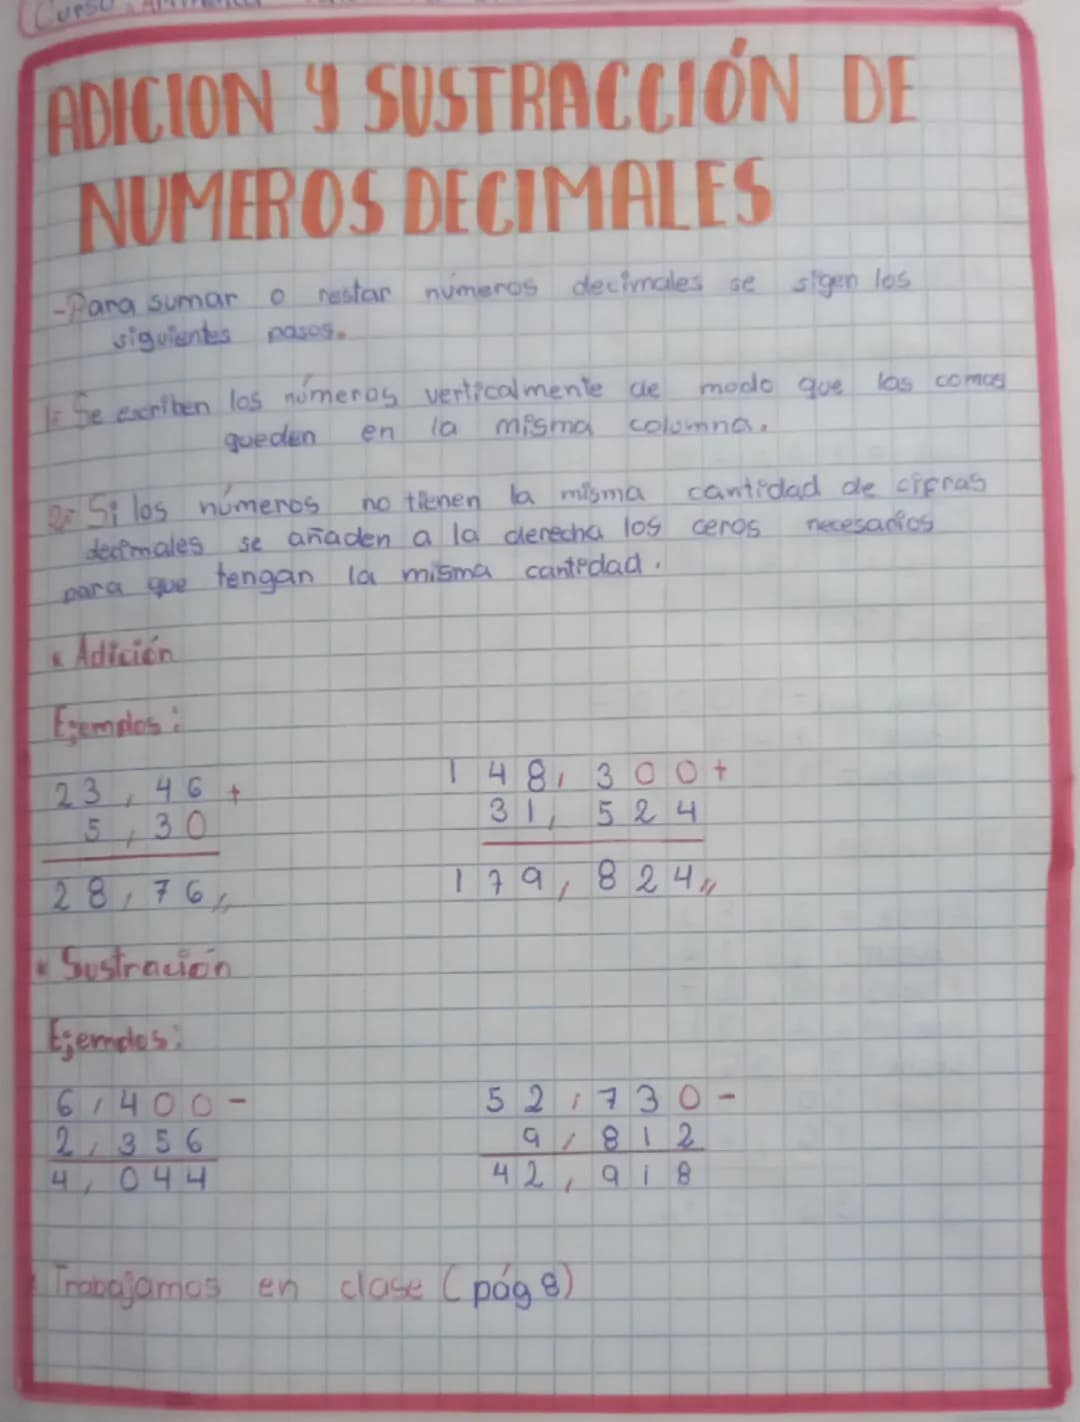 Curso
ADICION Y SUSTRACCIÓN DE
NUMEROS DECIMALES
-Para sumar o restar números decimales se sigen los
siguientes pasos.
1: Se escriben los números verticalmente de modo que las comas
queden en la misma columna.
2: Si los números no tienen la misma cantidad de cifras
decimales se añaden a la derecha los ceros necesarios
para que tengan la misma cantidad.
* Adición
Ejemplos:
23,46 +
5,30
28,76
148,300 +
31,524
179,824
* Sustración
Ejemplos:
6,400 -
2,356
4,044
52,730 -
9,812
42,918
Trabajamos en clase (pág 8)